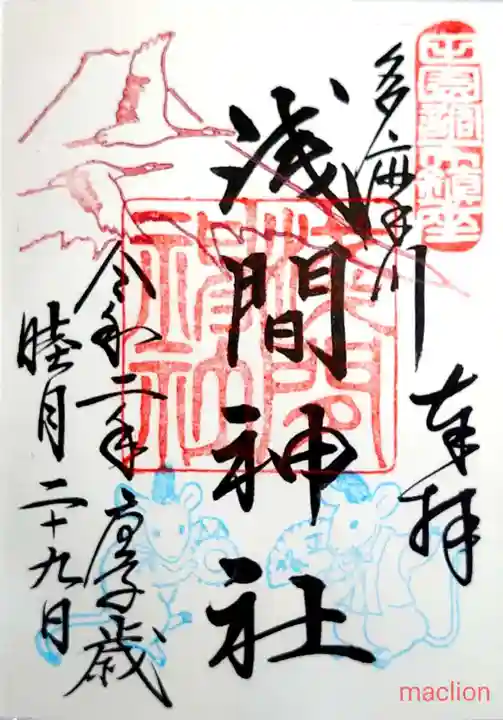 多摩川
奉拝
浅間神社
令和二年庚子歳
睦月二十九日
浅間神社
maclion